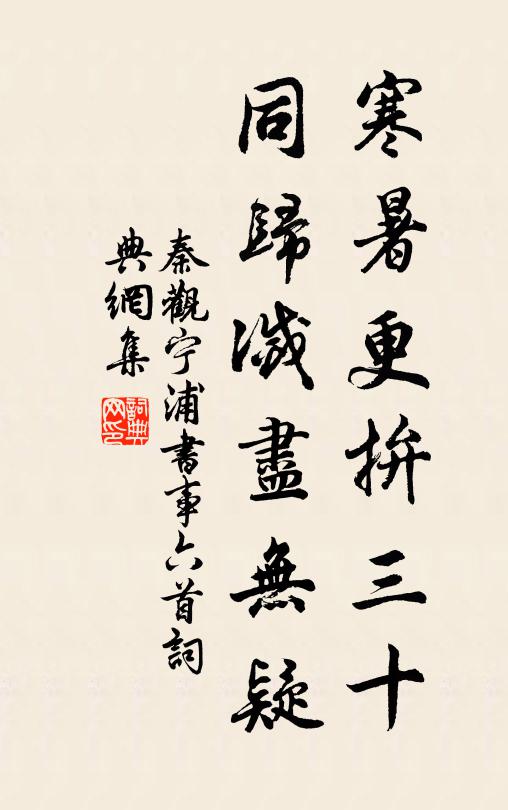 寒暑更拚三十
同歸滅盡無疑
秦觀宁浦書事六首詞
典網集
詞典
网印